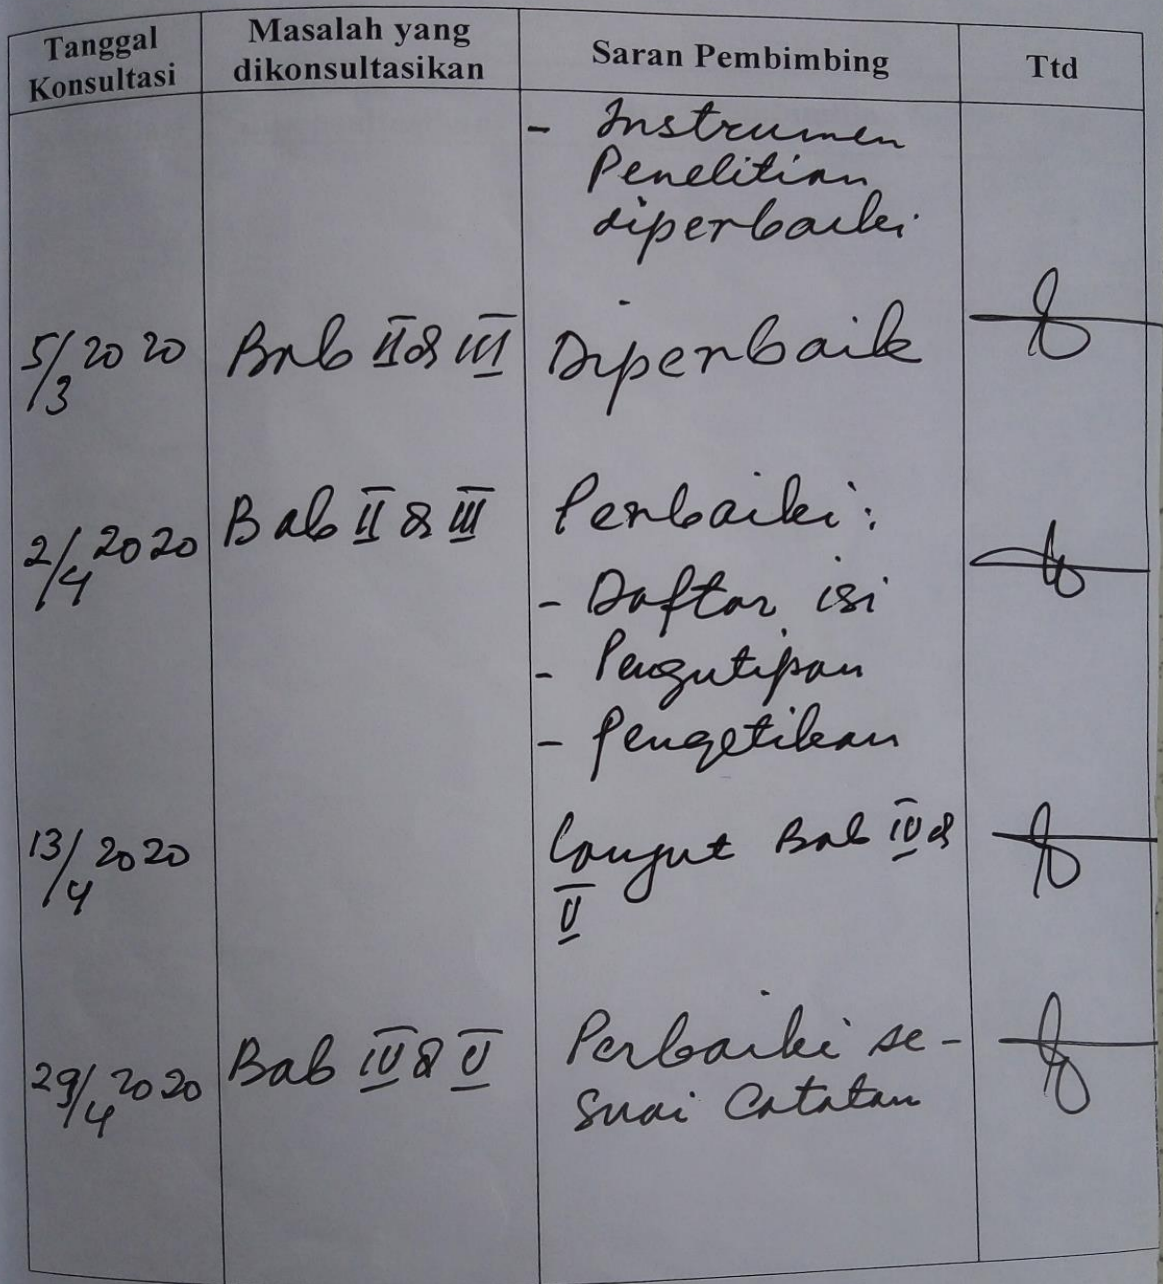 Tanggal Konsultasi Masalah yang dikonsultasikan Saran Pembimbing Ttd
- Instrumen
Penelitian
diperbaiki.
5/3 2020 Bab II & III Diperbaik
2/4 2020 Bab II & III Perbaiki:
- Daftar isi
- Pengutipan
- Pengetikan
13/4 2020 Lanjut Bab IV &
V
29/4 2020 Bab IV & V Perbaiki se-
suai Catatan